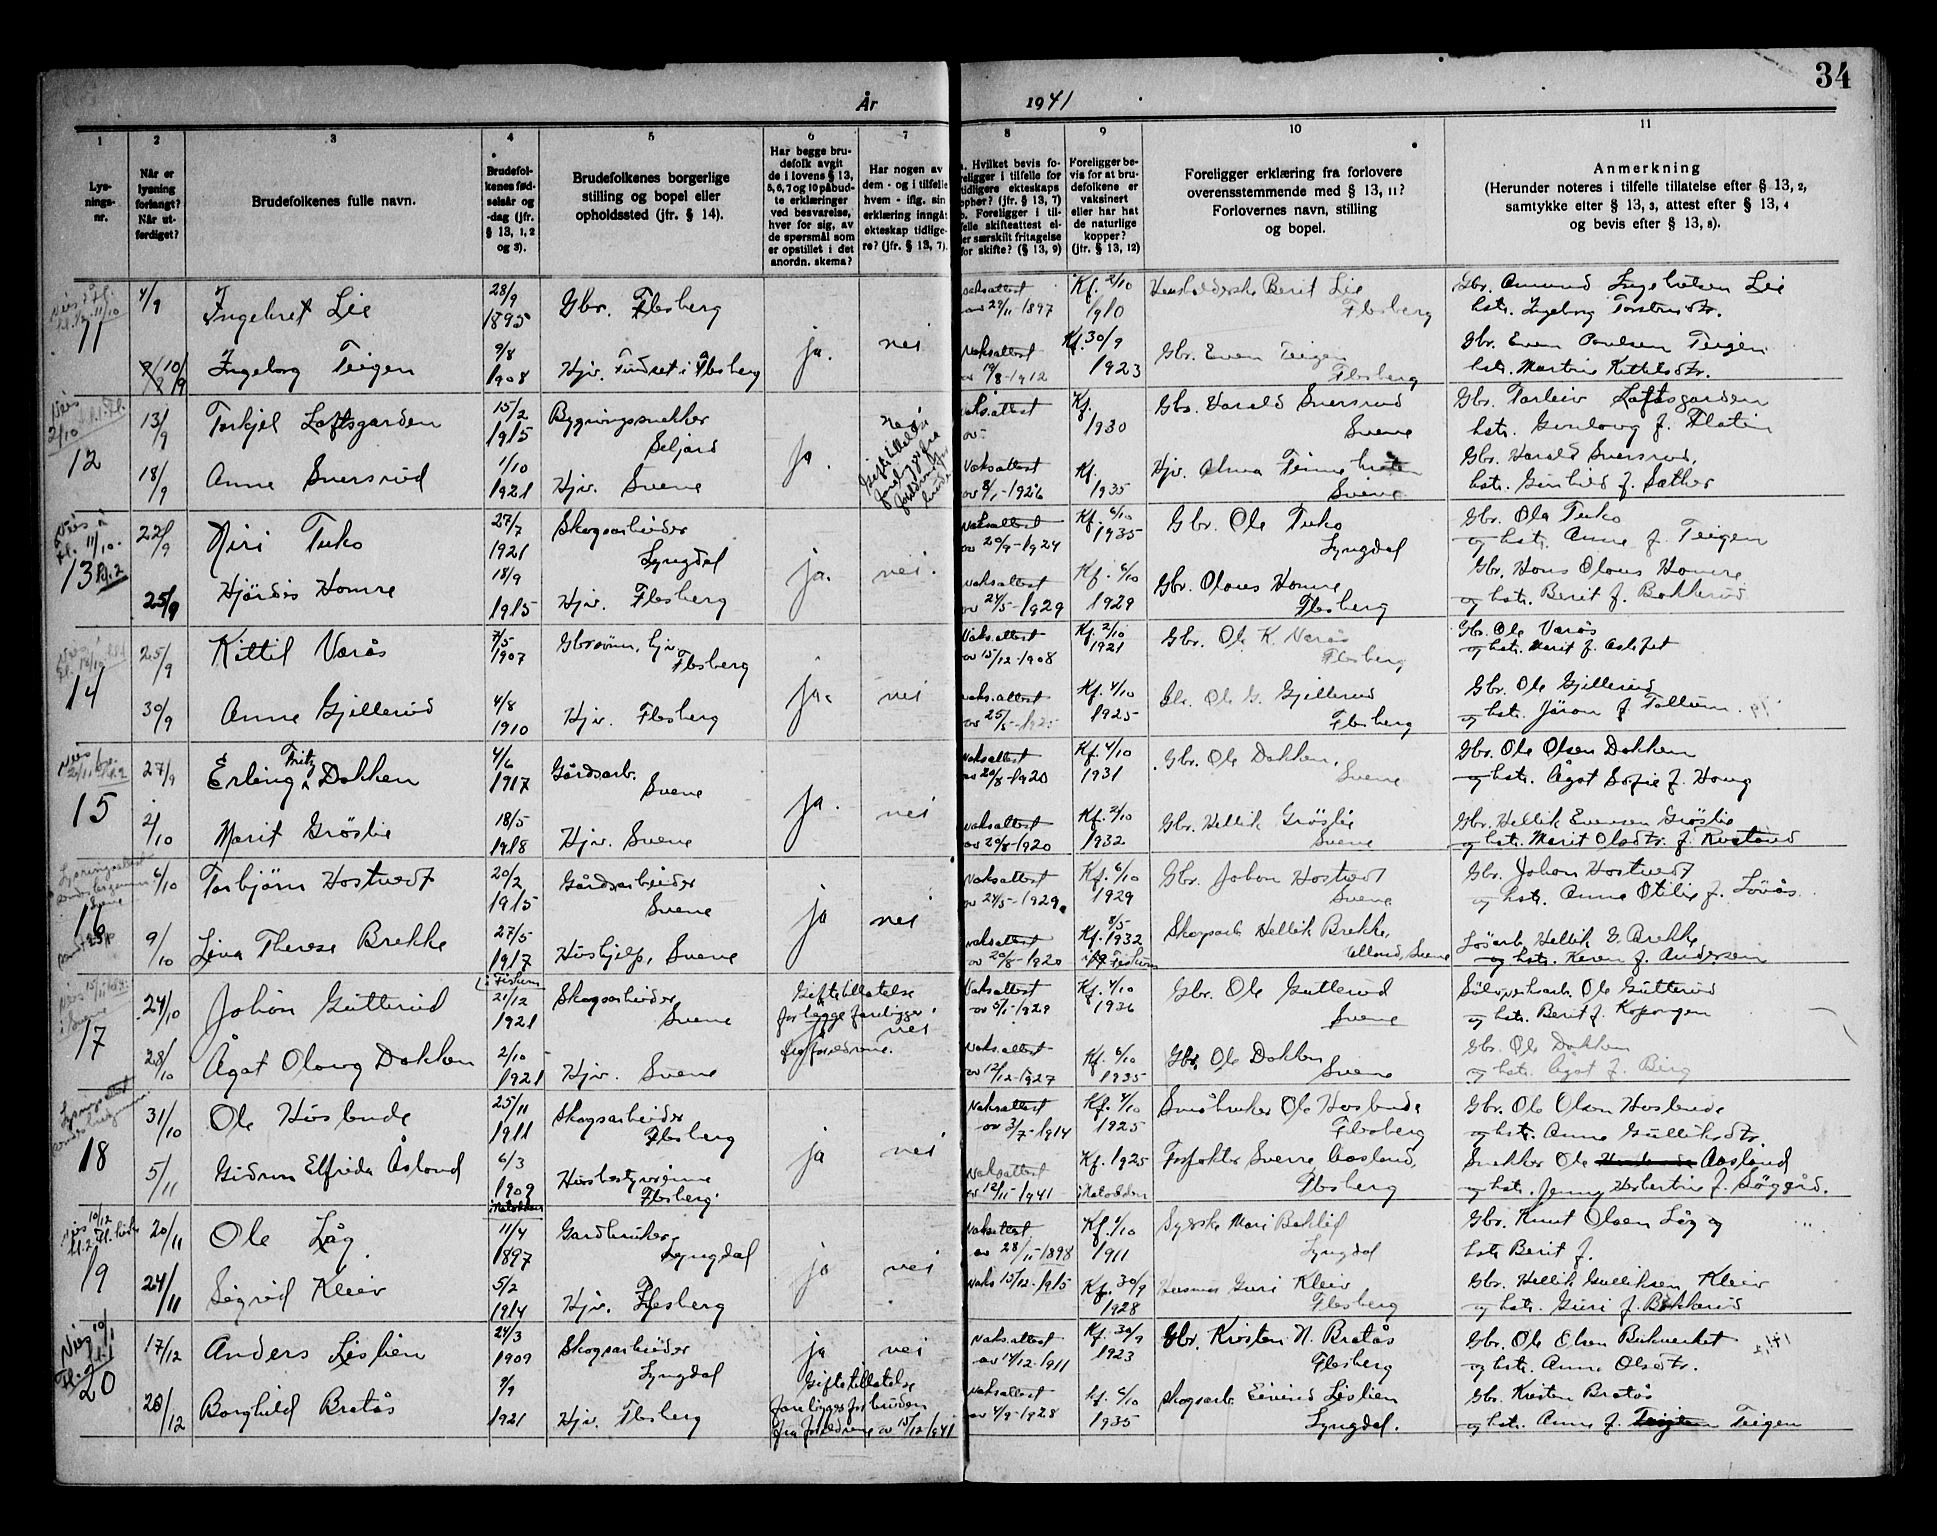 34
År 1941
1 2 3 4 5 6 7 8 9 10 11
Lys-
nings-
nr.
Når er
lysning
forlangt?
Når ut-
ferdiget?
Brudefolkenes fulle navn.
Brudefol-
kenes fød-
selsår og
-dag (jfr.
§ 13, 1, 2
og 3).
Brudefolkenes borgerlige
stilling og bopel eller
opholdssted (jfr. § 14).
Har begge bru-
defolk avgit
de i lovens § 13,
5, 6, 7 og 10 påbud-
te erklæringer
ved besvarelse,
hver for sig, av
de spørsmål som
er opstillet i det
anordn. skema?
Har nogen av
dem - og i tilfelle
hvem - iflg. sin
erklæring inngåt
ekteskap tidlige-
re? (jfr. § 13, 7).
a. Hvilket bevis fo-
religger i tilfelle for
tidligere ekteskaps
ophør? (jfr. § 13, 7)
b. Foreligger i til-
felle skifteattest el-
ler særskilt fritagelse
for skifte? (§ 13, 9)
Foreligger be-
vis for at bru-
defolkene er
vaksinert
eller har hat
de naturlige
kopper?
(jfr. § 13, 12)
Foreligger erklæring fra forlovere
overensstemmende med § 13, 11?
Forlovernes navn, stilling
og bopel.
Anmerkning
(Herunder noteres i tilfelle tillatelse efter § 13, 2,
samtykke efter § 13, 3, attest efter § 13, 4
og bevis efter § 13, 8).
11
4/9 Ingebret Lie 28/9 1895 Gbr. Flesberg ja. nei
Vaksattest av 29/11-1897 Kf. 2/10 1910 Berit Lie Flesberg
Gbr. Amund Ingebretsen Lie
hstr. Ingeborg Torstensdtr.
10/9 Ingeborg Teigen 9/8 1908 Hjv. Flesberg
Vaksattest av 19/8-1912 Kf. 30/9 1923 Gbr. Even Teigen Flesberg
Gbr. Even Paulsen Teigen
hstr. Martine Kittelsdtr.
12
13/9 Torkjel Loftsgarden 15/2 1915 Bygningssnekker Seljord ja. nei
Vaks.attest Kf. 1930 Gbr. Harald Svensrud Svene
Gbr. Torleiv Loftsgarden
hstr. Gunlaug f. Flatin
18/9 Anne Svensrud 1/10 1921 Hjv. Svene
Vaksattest av 8/1-1926 Kf. 1935 Hjv. Alma Svene
Gbr. Harald Svensrud,
hstr. Gunhild f. Sæther
13
22/9 Niri Tuko 27/7 1921 Skogsarbeider Lyngdal ja. nei.
Vaksattest av 20/9-1924 Kf. 6/10 1935 Gbr. Ole Tuko Lyngdal
Gbr. Ola Tuko
og hstr. Anne f. Teigen
25/9 Hjördis Homre 18/9 1915 Hjv. Flesberg
Vaksattest av 24/5-1929 Kf. 6/10 1929 Gbr. Olaus Homre Flesberg
Gbr. Hans Olaus Homre
og hstr. Berit f. Bakkerud
14
25/9 Kittil Varås 7/5 1907 Gbrsønn, Flesberg ja. nei
Vaks.attest av 15/12-1908 Kf. 2/10 1921 Gbr. Ole K. Varås Flesberg
Gbr. Ole Varås
og hstr. Marit f.
30/9 Anne Gjellerud 4/8 1910 Hjv. Flesberg
Vaks.attest Kf. 4/10 1925 Gbr. Ole G. Gjellerud Flesberg
Gbr. Ole Gjellerud
og hstr. Jøran f. Tollum.
15
27/9 Erling Fritz Dokken 4/6 1917 Gårdsarb. Svene ja. nei
Vaksattest av 20/8-1920 Kf. 4/10 1931 Gbr. Ole Dokken, Svene
Gbr. Ole Olsen Dokken
og hstr. Ågot Sofie f. Haug
2/10 Marit Grøslie 18/5 1918 Hjv. Svene
Vaksattest av 20/8-1920 Kf. 2/10 1932 Gbr. Hellik Grøslie Svene
Gbr. Hellik Evensen Grøslie
og hstr. Marit Olsdtr. f.
16
6/10 Torbjørn Hostvedt 20/2 1915 Gårdsarbeider Svene ja nei
Vaksattest av 24/5-1929 Kf. 6/10 1929 Gbr. Johan Hostvedt Svene
Gbr. Johan Hostvedt
og hstr. Anne Otilie f. Løvås.
9/10 Lina Therese Brekke 27/5 1917 i Fiskum Hushjelp, Svene
Vaksattest av 20/8-1920 Kf. 8/5 1932 i Fiskum Skogsarb. Hellik Brekke, Svene
Løsarb. Hellik E. Brekke
og hstr. Karen f. Andersen
17
24/10 Johan Gutterud 21/12 1921 Skogsarbeider Svene Giftetillatelse for begge foreligger fra foreldrene. nei
Vaksattest av 5/1-1929 Kf. 4/10 1936 Gbr. Ole Gutterud Svene
Sølvverksarb. Ole Gutterud
og hstr. Berit f. Kopangen
28/10 Ågot Olaug Dokken 2/10 1921 Hjv. Svene
Vaks.attest av 12/12-1927 Kf. 6/10 1935 Gbr. Ole Dokken Svene
Gbr. Ole Dokken
og hstr. Ågot f. Berg
18
31/10 Ole Husebude 25/11 1911 Skogsarbeider Flesberg ja nei
Vaksattest av 3/7-1914 Kf. 4/10 1925 Småbruker Ole Flesberg
Gbr. Ole Olsen
og hstr. Anne Gulliksdtr.
5/11 Gudrun Elfrida Åsland 6/3 1909 i Notodden Husbestyrerinne Flesberg.
Vaksattest av 12/11-1941 Kf. 1925 i Notodden Forpakter Sverre Aasland, Flesberg
Snekker Ole Aasland
og hstr. Jenny Herbertine f. Søggård.
19
20/11 Ole Låg. 11/4 1897 Gardbruker, Lyngdal ja nei
Vaksattest av 28/11-1898 Kf. 1/10 1911 Syerske Mari Lyngdal
Gbr. Knut Olsen Låg og
hstr. Berit f.
24/11 Sigrid Kleiv 5/2 1914 Hjv. Flesberg
Vaks 15/12-1915 Kf. 30/9 1928 Guri Kleiv Flesberg
Gbr. Hellik Gulliksen Kleiv
og hstr. Guri f. Bakkerud
20
17/12 Anders Lislien 24/3 1909 Skogsarbeider Lyngdal ja nei
Vaks.attest av 14/12-1911 Kf. 30/9 1923 Gbr. Kristen N. Bratås Flesberg
Gbr. Ole Olsen
og hstr. Anne Olsdtr.
20/12 Borghild Bratås 9/9 1921 Hjv. Flesberg Giftetillatelse foreligger for bruden fra foreldrene av 15/12 1941
Vaksattest av 4/9-1928 Kf. 6/10 1935 Skogsarb. Eivind Lislien Lyngdal.
Gbr. Kristen Bratås
og hstr. Anne f. Teigen